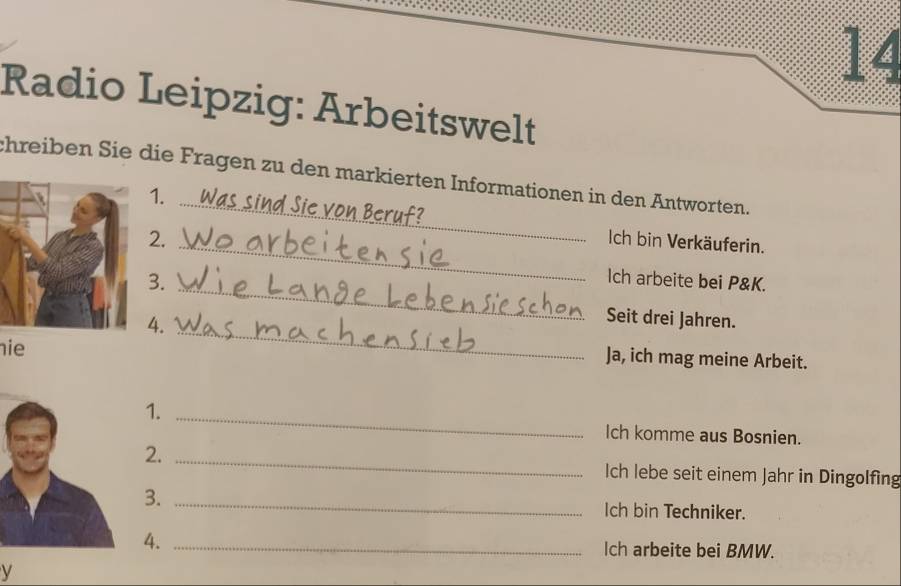 14
Radio Leipzig: Arbeitswelt
chreiben Sie die Fragen zu den markierten Informationen in den Antworten.
1. Was sind Sie von Beruf?
Ich bin Verkäuferin.
2. Wo arbeiten sie
Ich arbeite bei P&K.
3. Wie Lange Leben sie schon
Seit drei Jahren.
4. Was machen sieb
Ja, ich mag meine Arbeit.
nie
1.
Ich komme aus Bosnien.
2.
Ich lebe seit einem Jahr in Dingolfing
3.
Ich bin Techniker.
4.
Ich arbeite bei BMW.
y